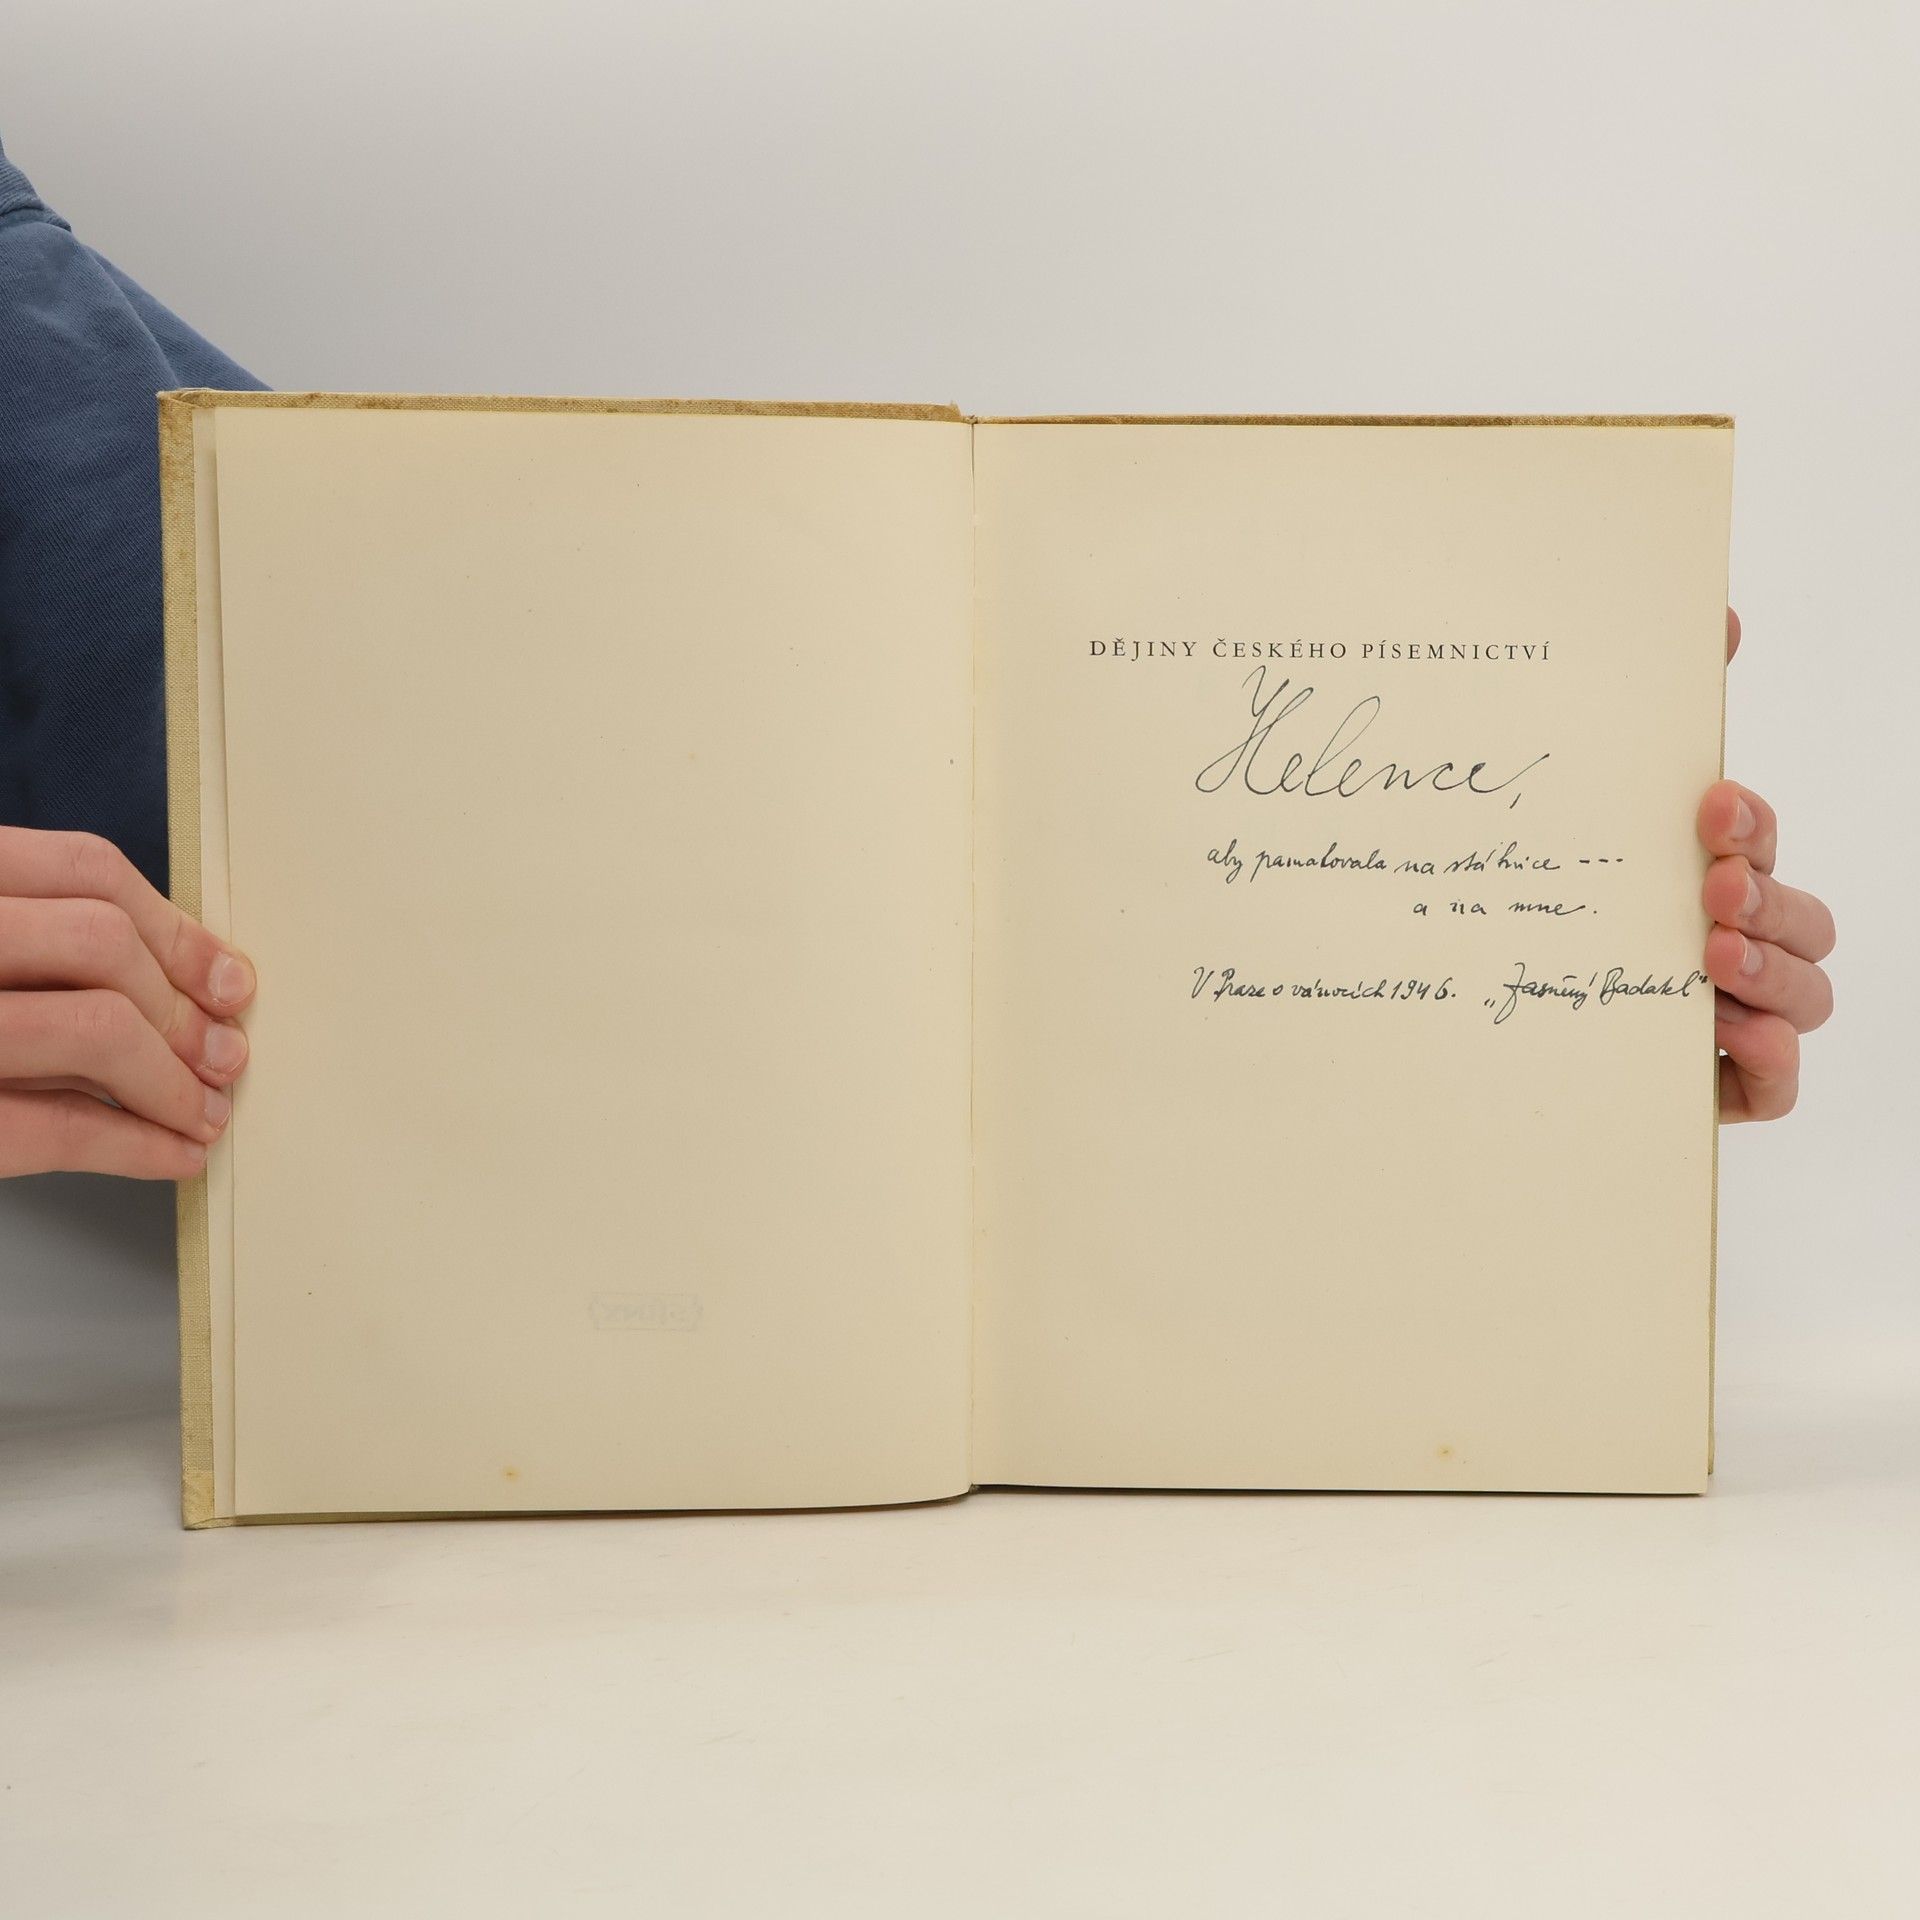 DĚJINY ČESKÉHO PÍSEMNICTVÍ
Helence,
aby pamatovala na státnice ---
a na mne.
V Praze o vánocích 1946. „Jasněný Badatel"